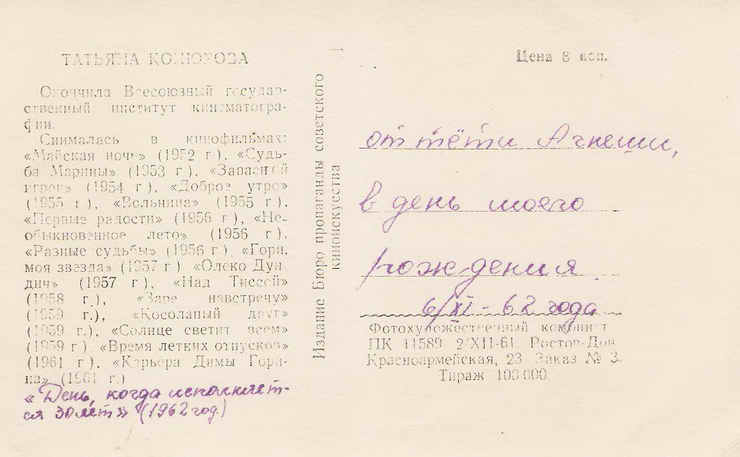 ТАТЬЯНА КОНЮХОВА
Окончила Всесоюзный государ-
ственный институт кинематогра-
фии.
Снималась в кинофильмах:
«Майская ночь» (1952 г.), «Судь-
ба Марины» (1953 г.), «Запасной
игрок» (1954 г.), «Доброе утро»
(1955 г.), «Вольница» (1955 г.),
«Первые радости» (1956 г.), «Не-
обыкновенное лето» (1956 г.),
«Разные судьбы» (1956 г.), «Гори,
моя звезда» (1957 г.) «Олеко Дун-
дич» (1957 г.), «Над Тиссой»
(1958 г.), «Заре навстречу»
(1959 г.), «Косолапый друг»
(1959 г.), «Солнце светит всем»
(1959 г.) «Время летних отпусков»
(1961 г.) «Карьера Димы Гори-
на» (1961 г.)
«День, когда исполняет-
ся 30 лет» (1962 год.)
Издание Бюро пропаганды советского
киноискусства
Цена 8 коп.
от тёти Агнеши,
в день моего
рождения
6/XI-62 года
Фотохудожественный комбинат
ПК 11589 2/XII-61. Ростов-Дон
Красноармейская, 23 Заказ № 3.
Тираж 100 000.